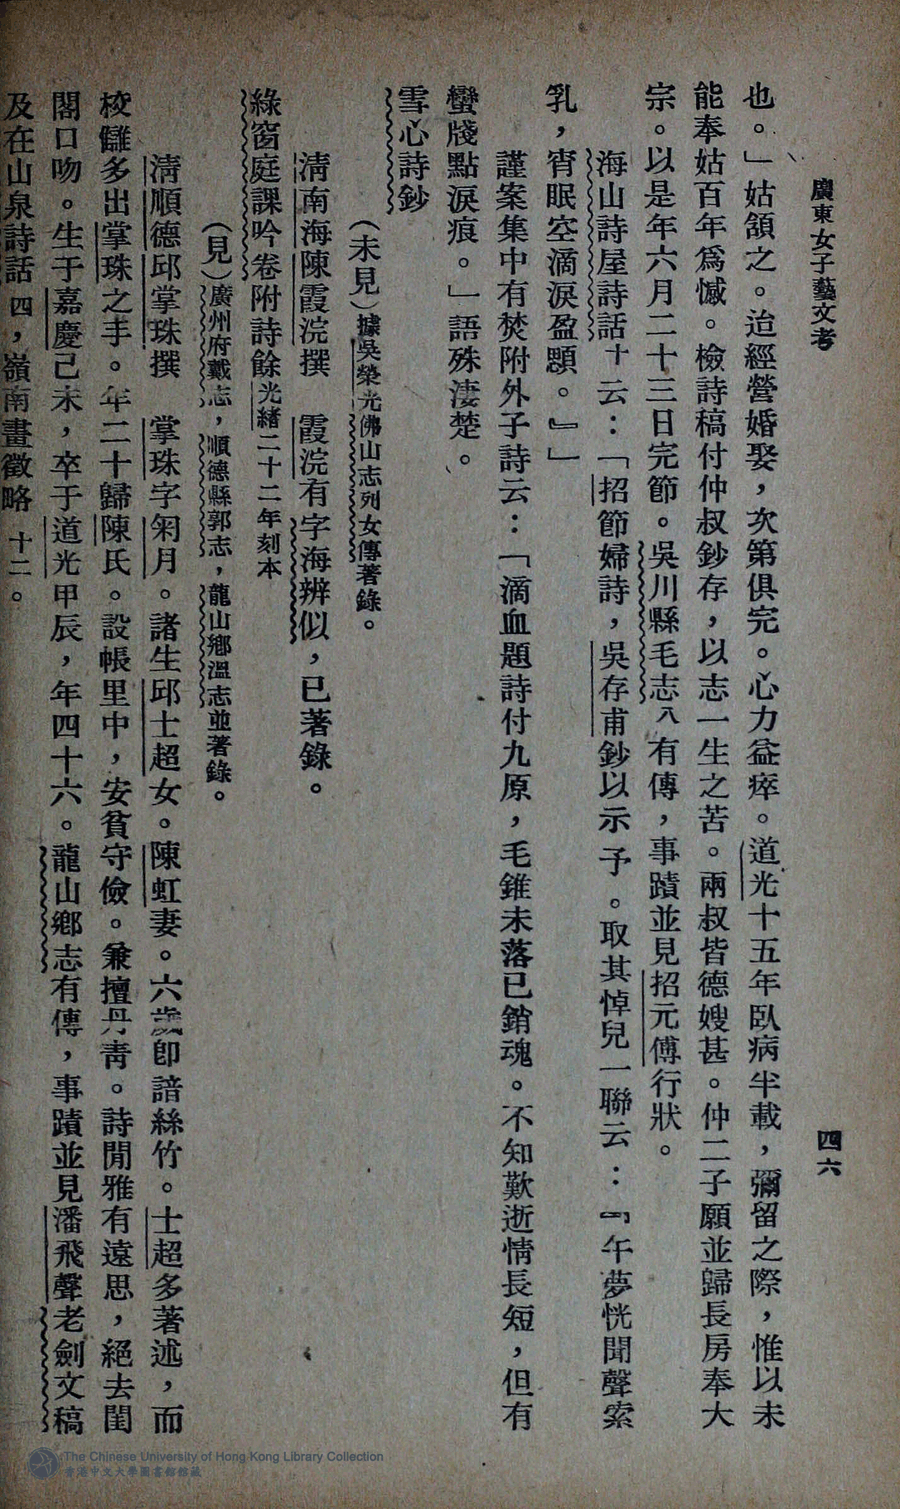 廣東女子藝文考
四六
也。」姑頷之。迨經營婚娶，次第俱完。心力益瘁。道光十五年臥病半載，彌留之際，惟以未
能奉姑百年爲憾。檢詩稿付仲叔鈔存，以志一生之苦。兩叔皆德嫂甚。仲二子願並歸長房奉大
宗。以是年六月二十三日完節。吳川縣毛志八有傳，事蹟並見招元傅行狀。
海山詩屋詩話十云：「招節婦詩，吳存甫鈔以示予。取其悼兒一聯云：『午夢恍聞聲索
乳，宵眠空滴淚盈題。』」
謹案集中有焚附外子詩云：「滴血題詩付九原，毛錐未落已銷魂。不知歎逝情長短，但有
蠻牋點淚痕。」語殊淒楚。
雪心詩鈔
（未見）據吳榮光佛山志列女傳著錄。
淸南海陳霞浣撰　霞浣有字海辨似，已著錄。
綠窗庭課吟卷附詩餘光緒二十二年刻本
（見）廣州府戴志，順德縣郭志，龍山鄕溫志並著錄。
淸順德邱掌珠撰　掌珠字匊月。諸生邱士超女。陳虹妻。六歲卽諳絲竹。士超多著述，而
校讎多出掌珠之手。年二十歸陳氏。設帳里中，安貧守儉。兼擅丹靑。詩閒雅有遠思，絕去閨
閣口吻。生于嘉慶己未，卒于道光甲辰，年四十六。龍山鄕志有傳，事蹟並見潘飛聲老劍文稿
及在山泉詩話四，嶺南畫徵略十二。
The Chinese University of Hong Kong Library Collection
香港中文大學圖書館館藏